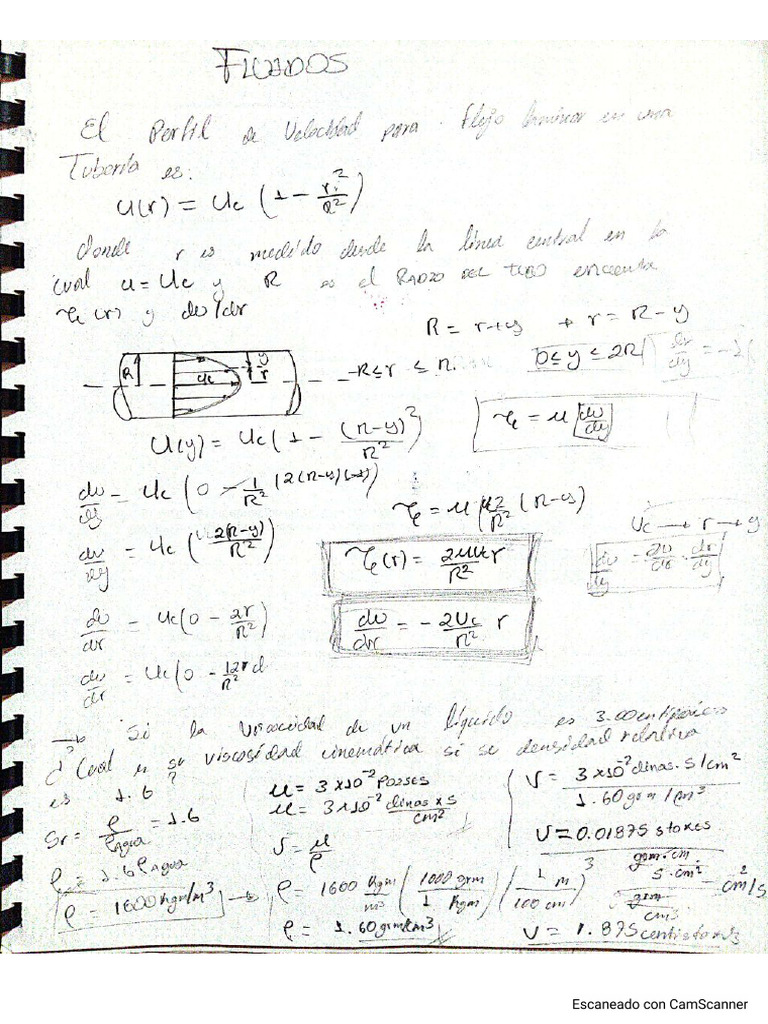 FLUIDOS
El Perfil de Velocidad para Flujo laminar en una
Tubería es:
u(r) = Uc (1 - r²/R²)
donde r es medido desde la línea central en la
cual u = Uc y R es el RADIO DEL TUBO encuentre
τ(r) y du/dr
R = r+y → r = R-y
R uc y r -R ≤ r ≤ R 0 ≤ y ≤ 2R
U(y) = Uc (1 - (R-y)²/R²)
τ = μ du/dy
du/dy = Uc (0 - 1/R² (2(R-y)(-1))
τ = μ Uc2/R² (R-y)
du/dy = Uc (2(R-y)/R²)
Uc → r → y
τ(r) = 2μUc r/R²
du/dy = du/dr · dr/dy
du/dr = Uc (0 - 2r/R²)
du/dr = -2Uc/R² r
du/dr = Uc (0 - 12r/R²
→ Si la viscocidad de un líquido es 3.00 centipoises
¿Cual es su viscosidad cinemática si se densidad relativa
es 1.6?
μ = 3×10⁻² Poises
μ = 3×10⁻² dinas×s/cm²
V = 3×10⁻² dinas·s/cm² / 1.60 grm/cm³
Sr = ρ/ρagua = 1.6
V = μ/ρ
V = 0.01875 stokes
ρ = 1.6 ρAgua
ρ = 1600 Kgm/m³
→ ρ = 1600 Kgm/m³ (1000 grm/1 Kgm) (1 m/100 cm)³
grm·cm/s·cm² / grm/cm³ = cm²/s
ρ = 1.60 grm/cm³
V = 1.875 centistokes
Escaneado con CamScanner